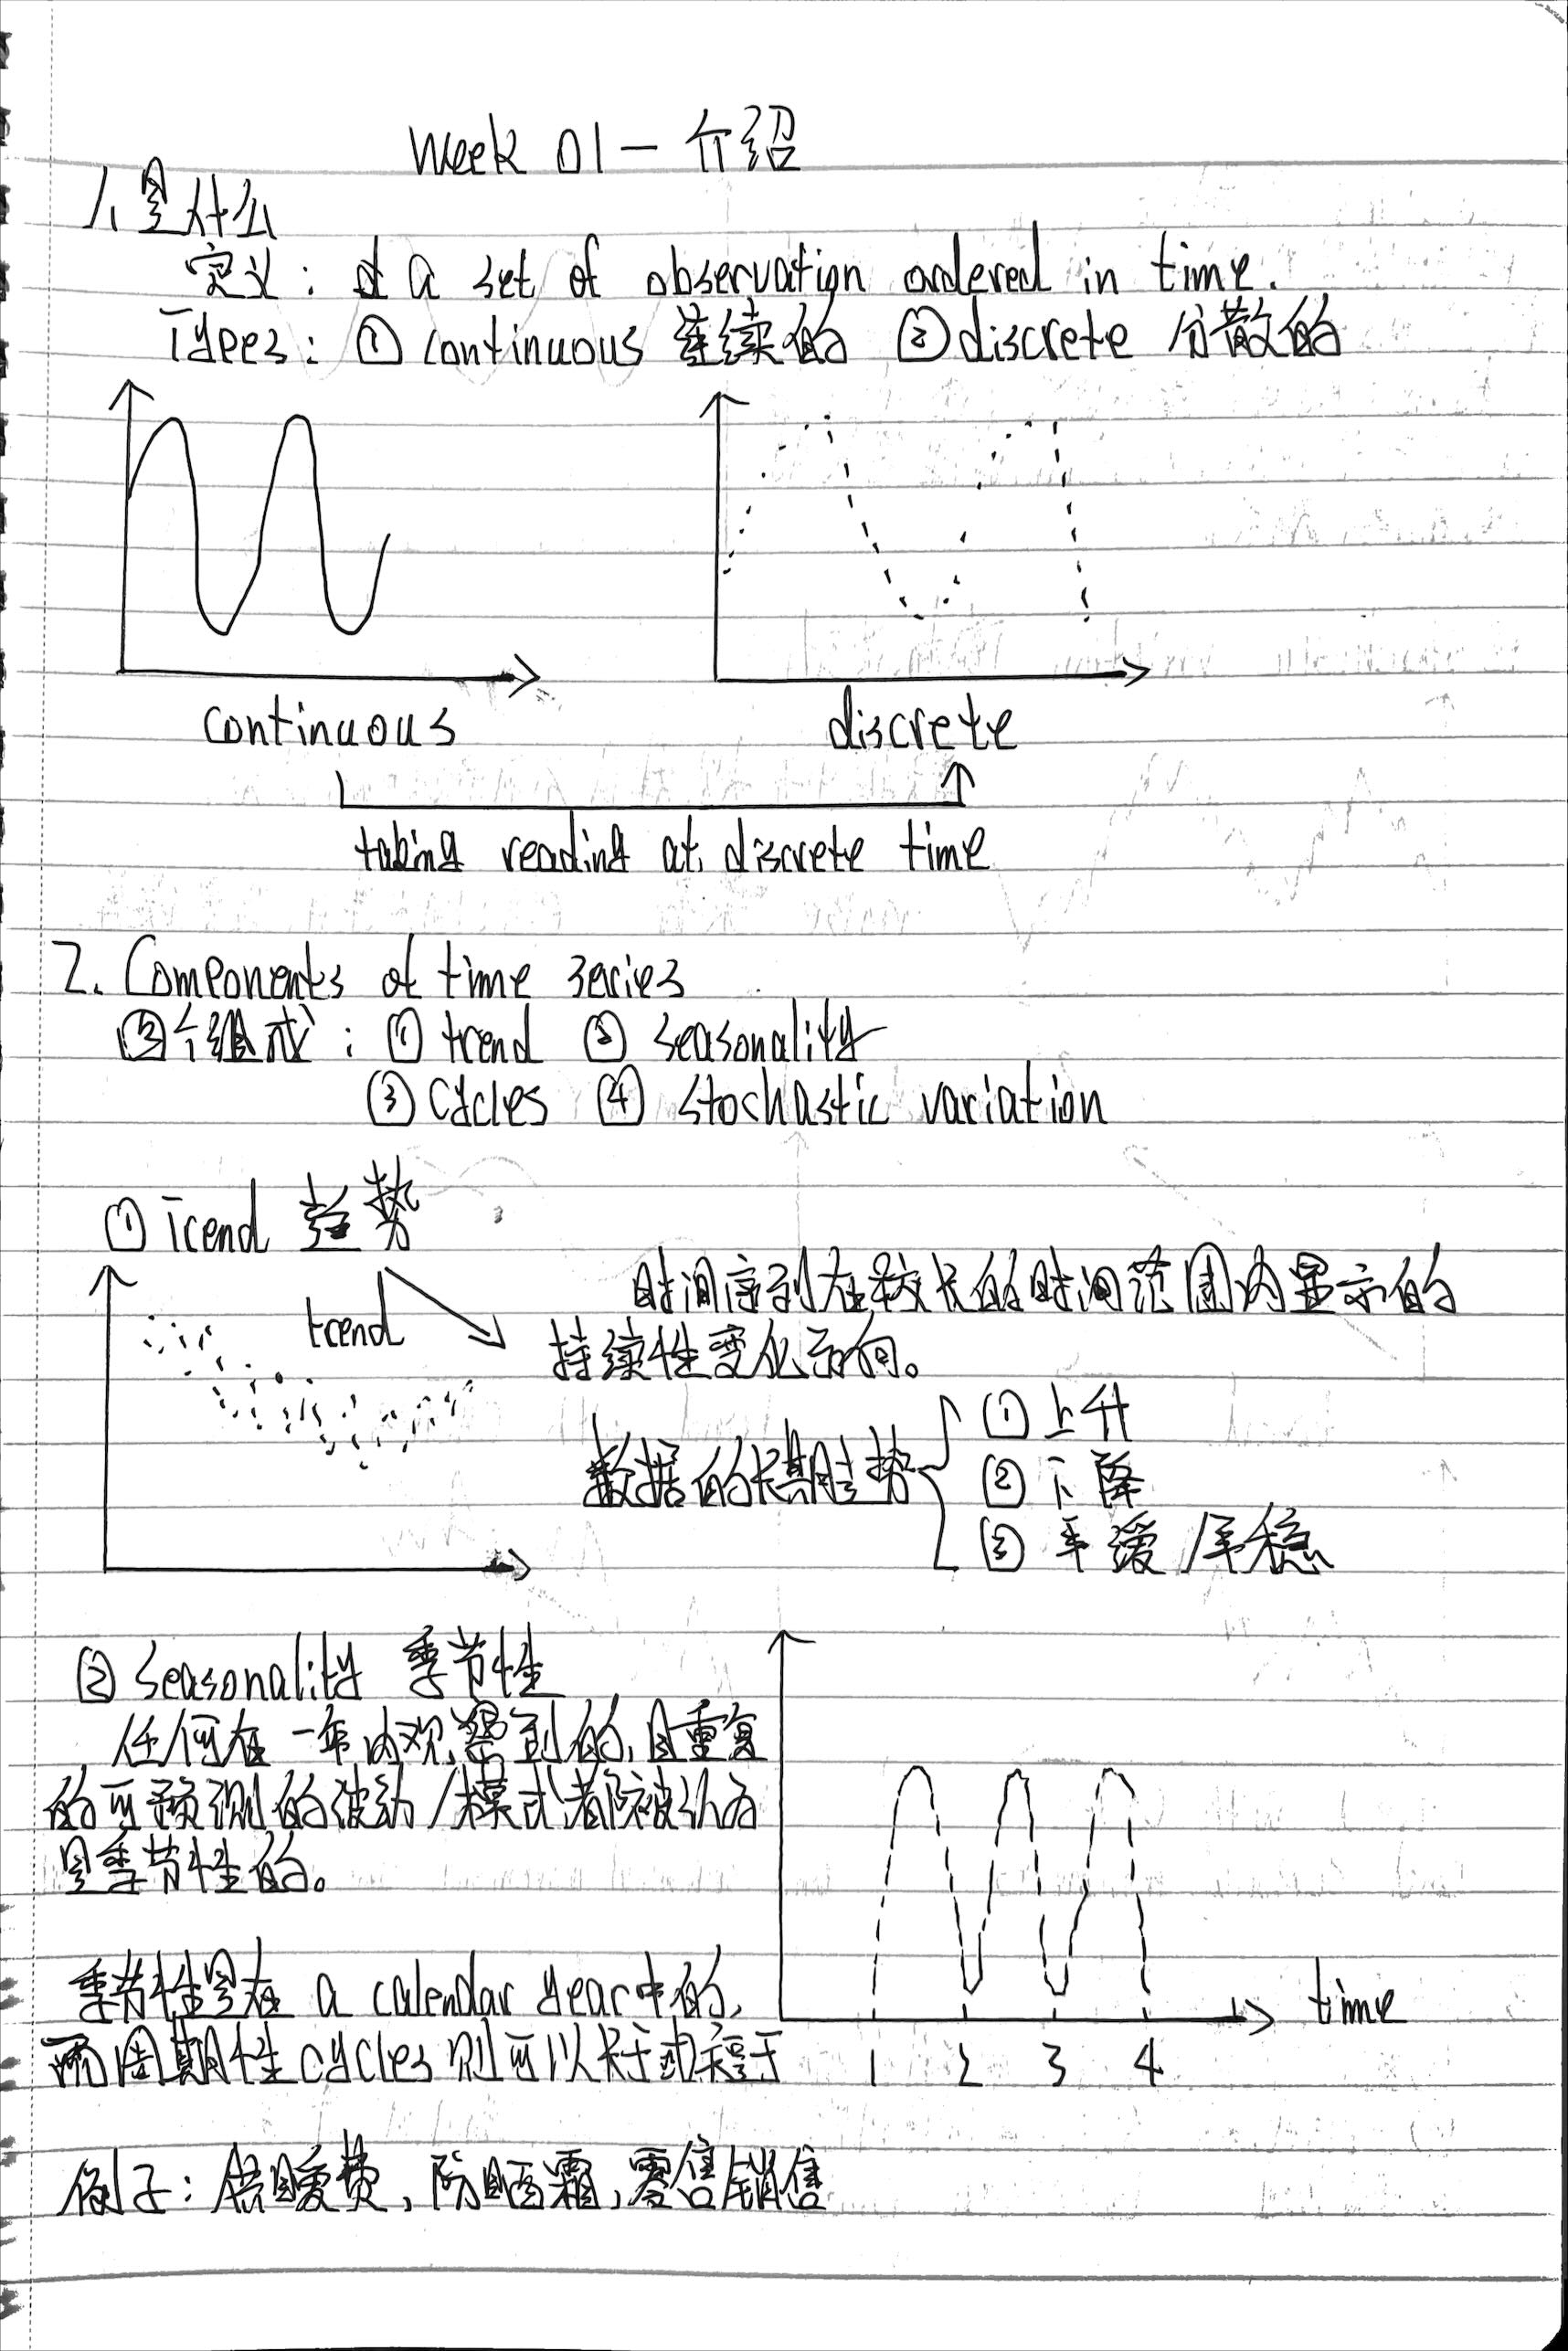 Week 01 - 介绍
1. 是什么
定义: a set of observation ordered in time.
Types: ① continuous 连续的 ② discrete 分散的
continuous
discrete
taking reading at discrete time
2. Components of time series
④个组成: ① trend ② seasonality
③ cycles ④ stochastic variation
① Trend 趋势
trend
时间序列在较长的时间范围内显示的
持续性变化方向。
数据的长期走势
① 上升
② 下降
③ 平缓/平稳
② seasonality 季节性
任何在一年内观察到的,且重复
的可预测的波动/模式都被认为
是季节性的。
季节性是在 a calendar year中的,
而周期性cycles则可以长于或短于
time
1 2 3 4
例子: 供暖费, 防晒霜, 零售销售